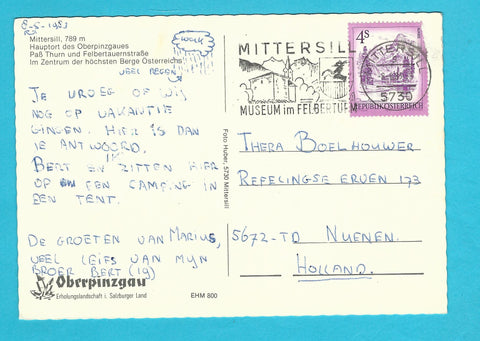 8-5-1983
Mittersill, 789 m
Hauptort des Oberpinzgaues
Paß Thurn und Felbertauernstraße
Im Zentrum der höchsten Berge Österreichs
VEEL REGEN
JE VROEG OF WIJ
NOG OP VAKANTIE
GINGEN. HIER IS DAN
JE ANTWOORD.
BERT EN IK ZITTEN HIER
OP EEN CAMPING IN
EEN TENT.
DE GROETEN VAN MARIUS,
VEEL LEIFS VAN MYN
BROER BERT (19)
Oberpinzgau
Erholungslandschaft i. Salzburger Land
EHM 800
Foto Huber, 5730 Mittersill
MITTERSILL
MUSEUM im FELBERTURM
MITTERSILL
5730
4S
REPUBLIK ÖSTERREICH
THERA BOELHOUWER
REFELINGSE ERVEN 173
5672-TD NUENEN
HOLLAND.